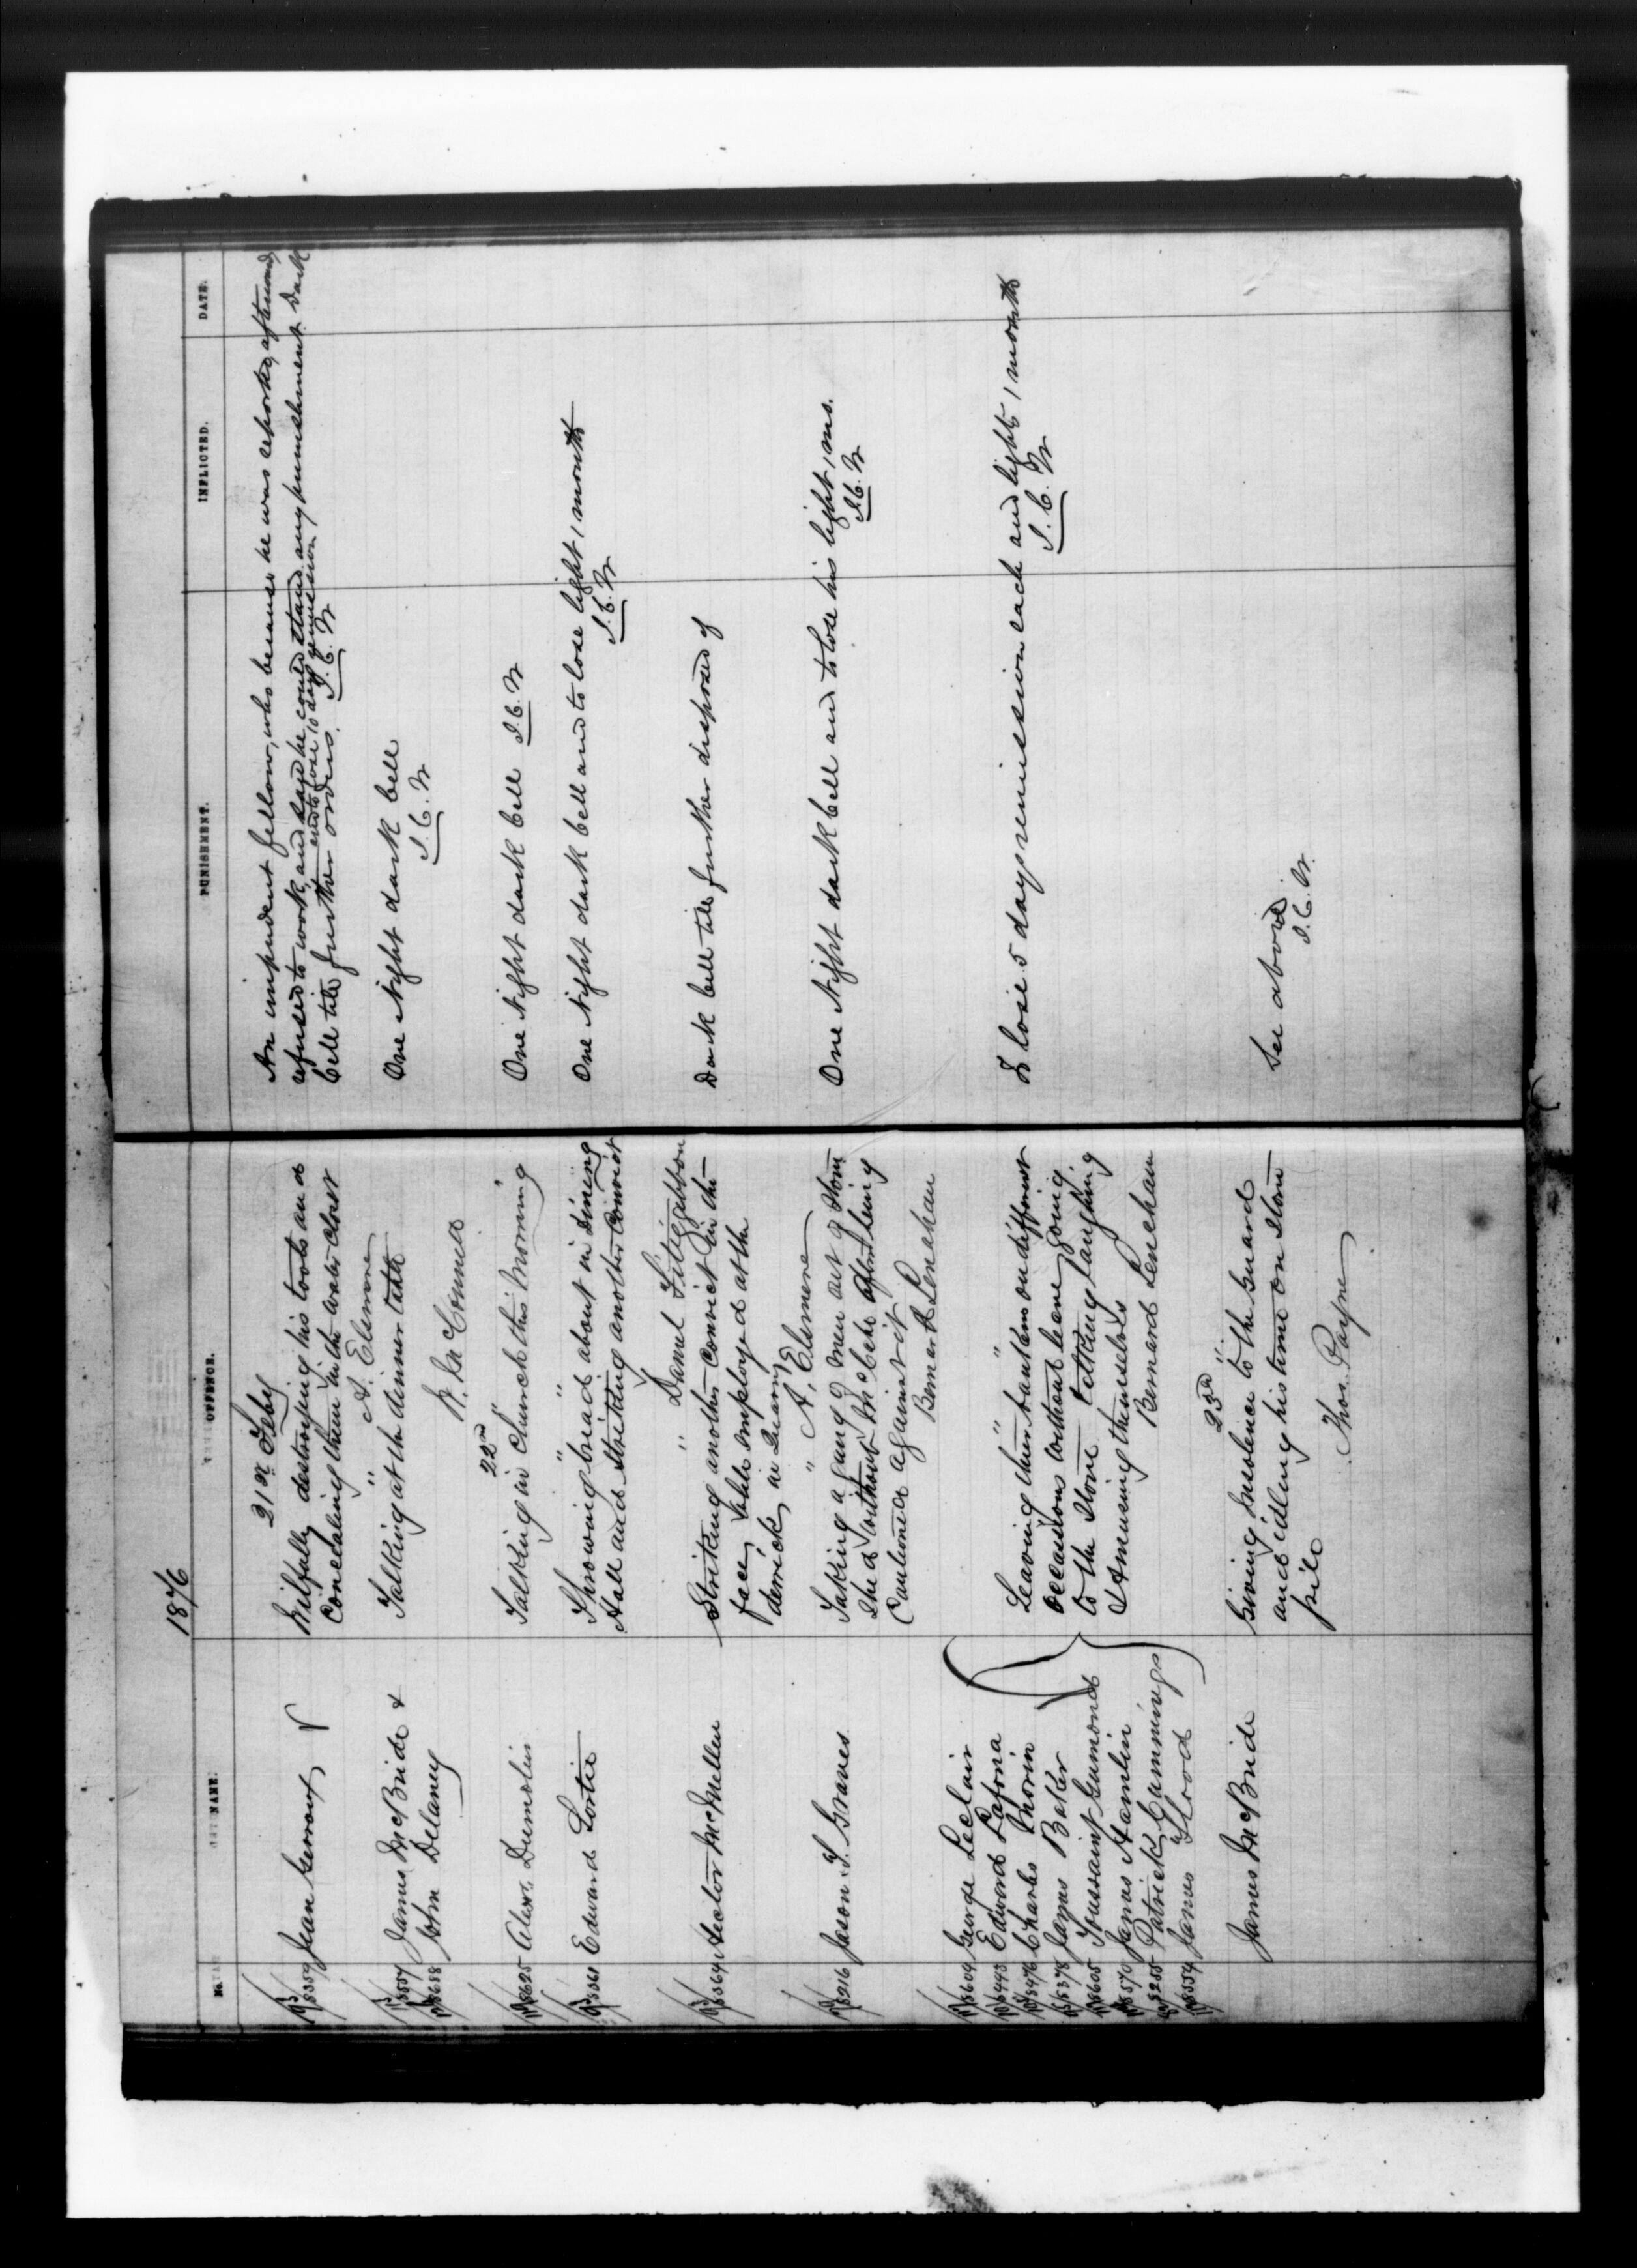 1876
No. NAME. OFFENCE. PUNISHMENT. INFLICTED. DATE.
21st Feby
8359 Jean Gerroux
Wilfully destroying his boots and
Concealing them in the water closet
A. Elsmere
An impudent fellow, who because he was reported, afterwards
refused to work, and says he could stand any punishment. Dark
and to lose 10 days remission
Cell till further orders. J. C. Jr
"
James McBride &
8688 John Delaney
Talking at the dinner table
W. McConnell
One Night dark Cell
J. C. Jr
22nd "
8625 Alexr. Dumolin
Talking in Church this Morning
One Night dark Cell J. C. Jr
" "
8361 Edward Lortie
Throwing bread about in Dining
Hall and Striking another Convict
Daniel Fitzgibbon
One Night dark Cell and to lose light 1 month
J. C. Jr
" "
8364 Hector McMillen
Striking another Convict in the
face, while employed at the
derrick, in Quarry
A. Elsmere
Dark Cell till further disposed of
" "
8216 Jason T. Graves
Taking a gang of men out of Stone
Shed without Mr Cake after being
Cautioned against it
Bernard Lenehan
One Night dark Cell and to lose his light 1 mo.
J. C. Jr
" "
8604 George Leclair
8443 Edward Lafona
8476 Charles Morin
8378 James Baker
8605 Toussaint Gumond
8570 James Hamlin
8255 Patrick Cummings
8554 James Flood
Leaving their bankers on different
Occasions without leave going
to the Stone talking laughing
& Amusing themselves
Bernard Lenehan
To lose 5 days remission each and light 1 month
J. C. Jr
23rd "
James McBride
Giving insolence to the Guard
and idling his time on Stone
pile
Thos. Payne
See above
J. C. Jr.